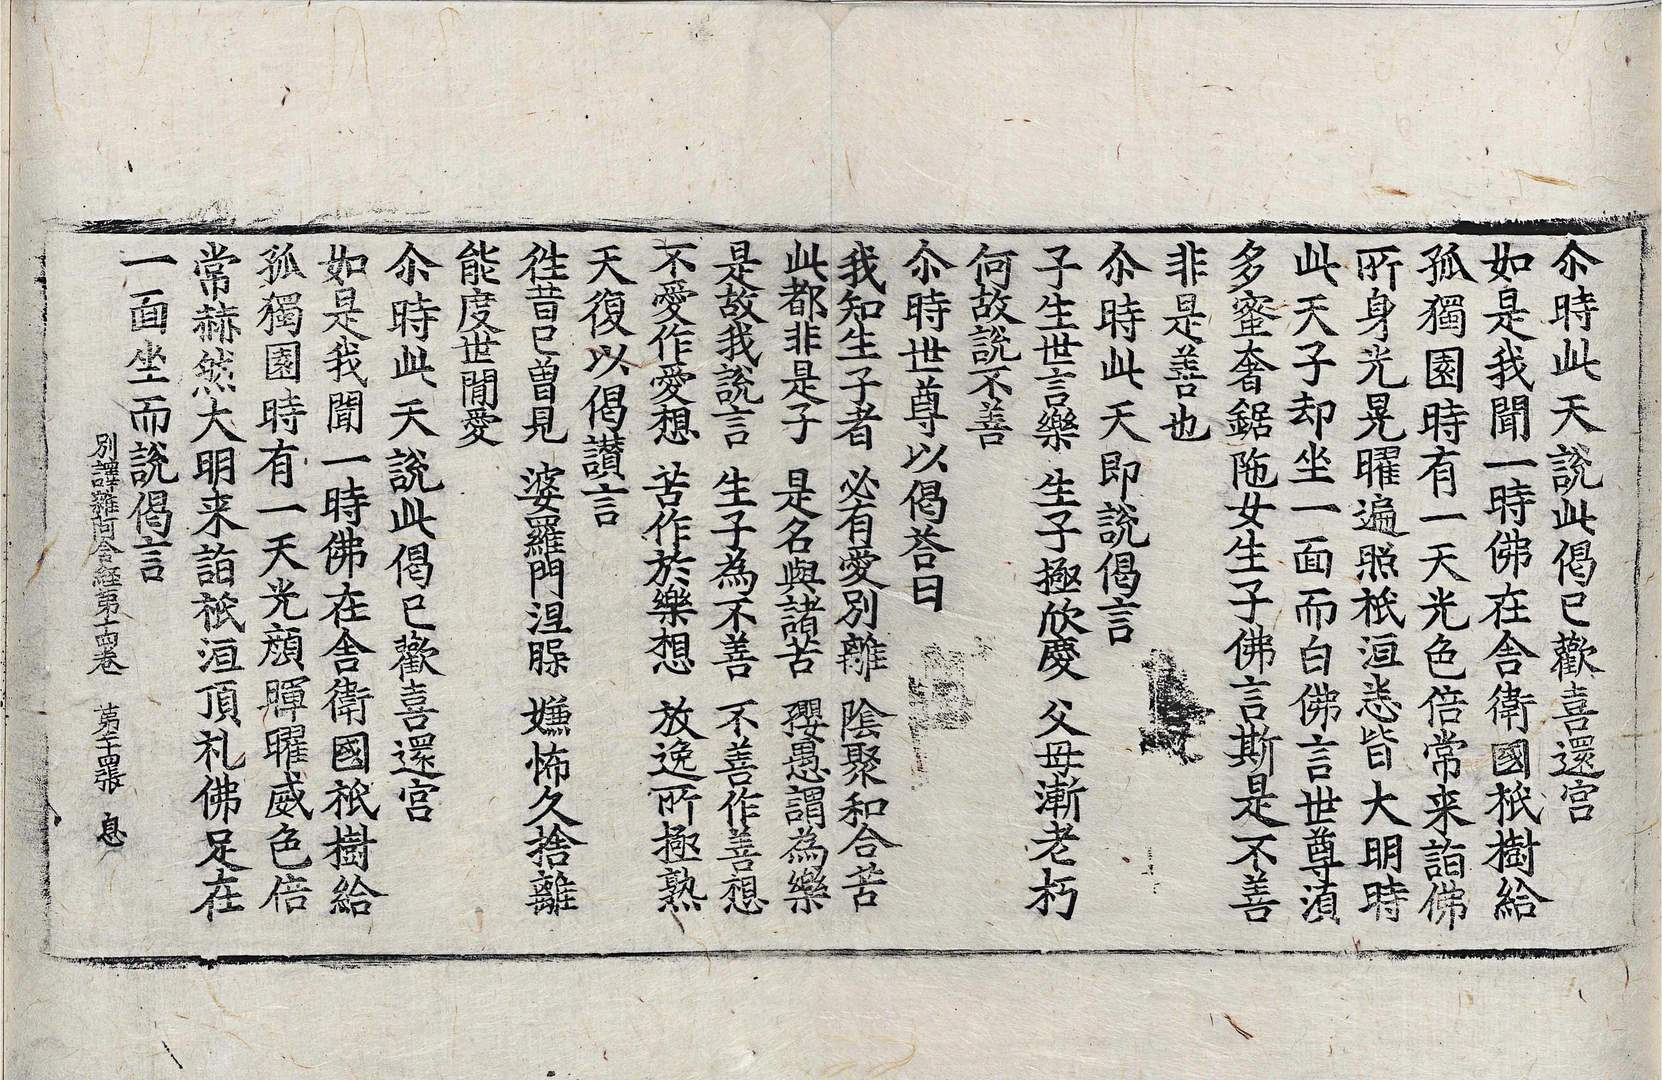 尒時此天說此偈已歡喜還宮
如是我聞一時佛在舍衛國祇樹給
孤獨園時有一天光色倍常来詣佛
所身光晃曜遍照祇洹悉皆大明時
此天子却坐一面而白佛言世尊湏
多蜜奢鋸陁女生子佛言斯是不善
非是善也
尒時此天即說偈言
子生世言樂 生子極欣慶 父母漸老朽
何故說不善
尒時世尊以偈荅曰
我知生子者 必有愛別離 陰聚和合苦
此都非是子 是名與諸苦 㹅愚謂為樂
是故我說言 生子為不善 不善作善想
不愛作愛想 苦作於樂想 放逸所極熟
天復以偈讃言
徃昔已曾見 婆羅門涅槃 嫌怖久捨離
能度世間愛
尒時此天說此偈已歡喜還宮
如是我聞一時佛在舍衛國祇樹給
孤獨園時有一天光顔暉曜威色倍
常赫然大明来詣祇洹頂礼佛足在
一面坐而說偈言
別譯雜阿含経第十四卷 第十四張 息